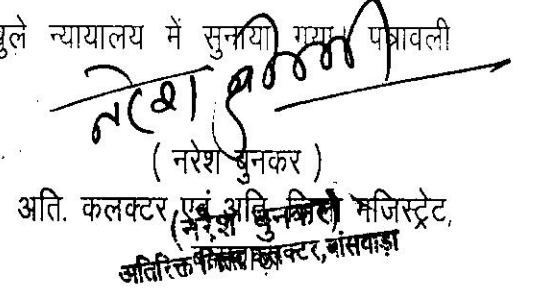 खुले न्यायालय में सुनाया गया। पत्रावली
नरेश
( नरेश बुनकर )
अति. कलक्टर एवं अति. जिला मजिस्ट्रेट,
(नरेश बुनकर)
अतिरिक्त जिला कलक्टर, बांसवाड़ा